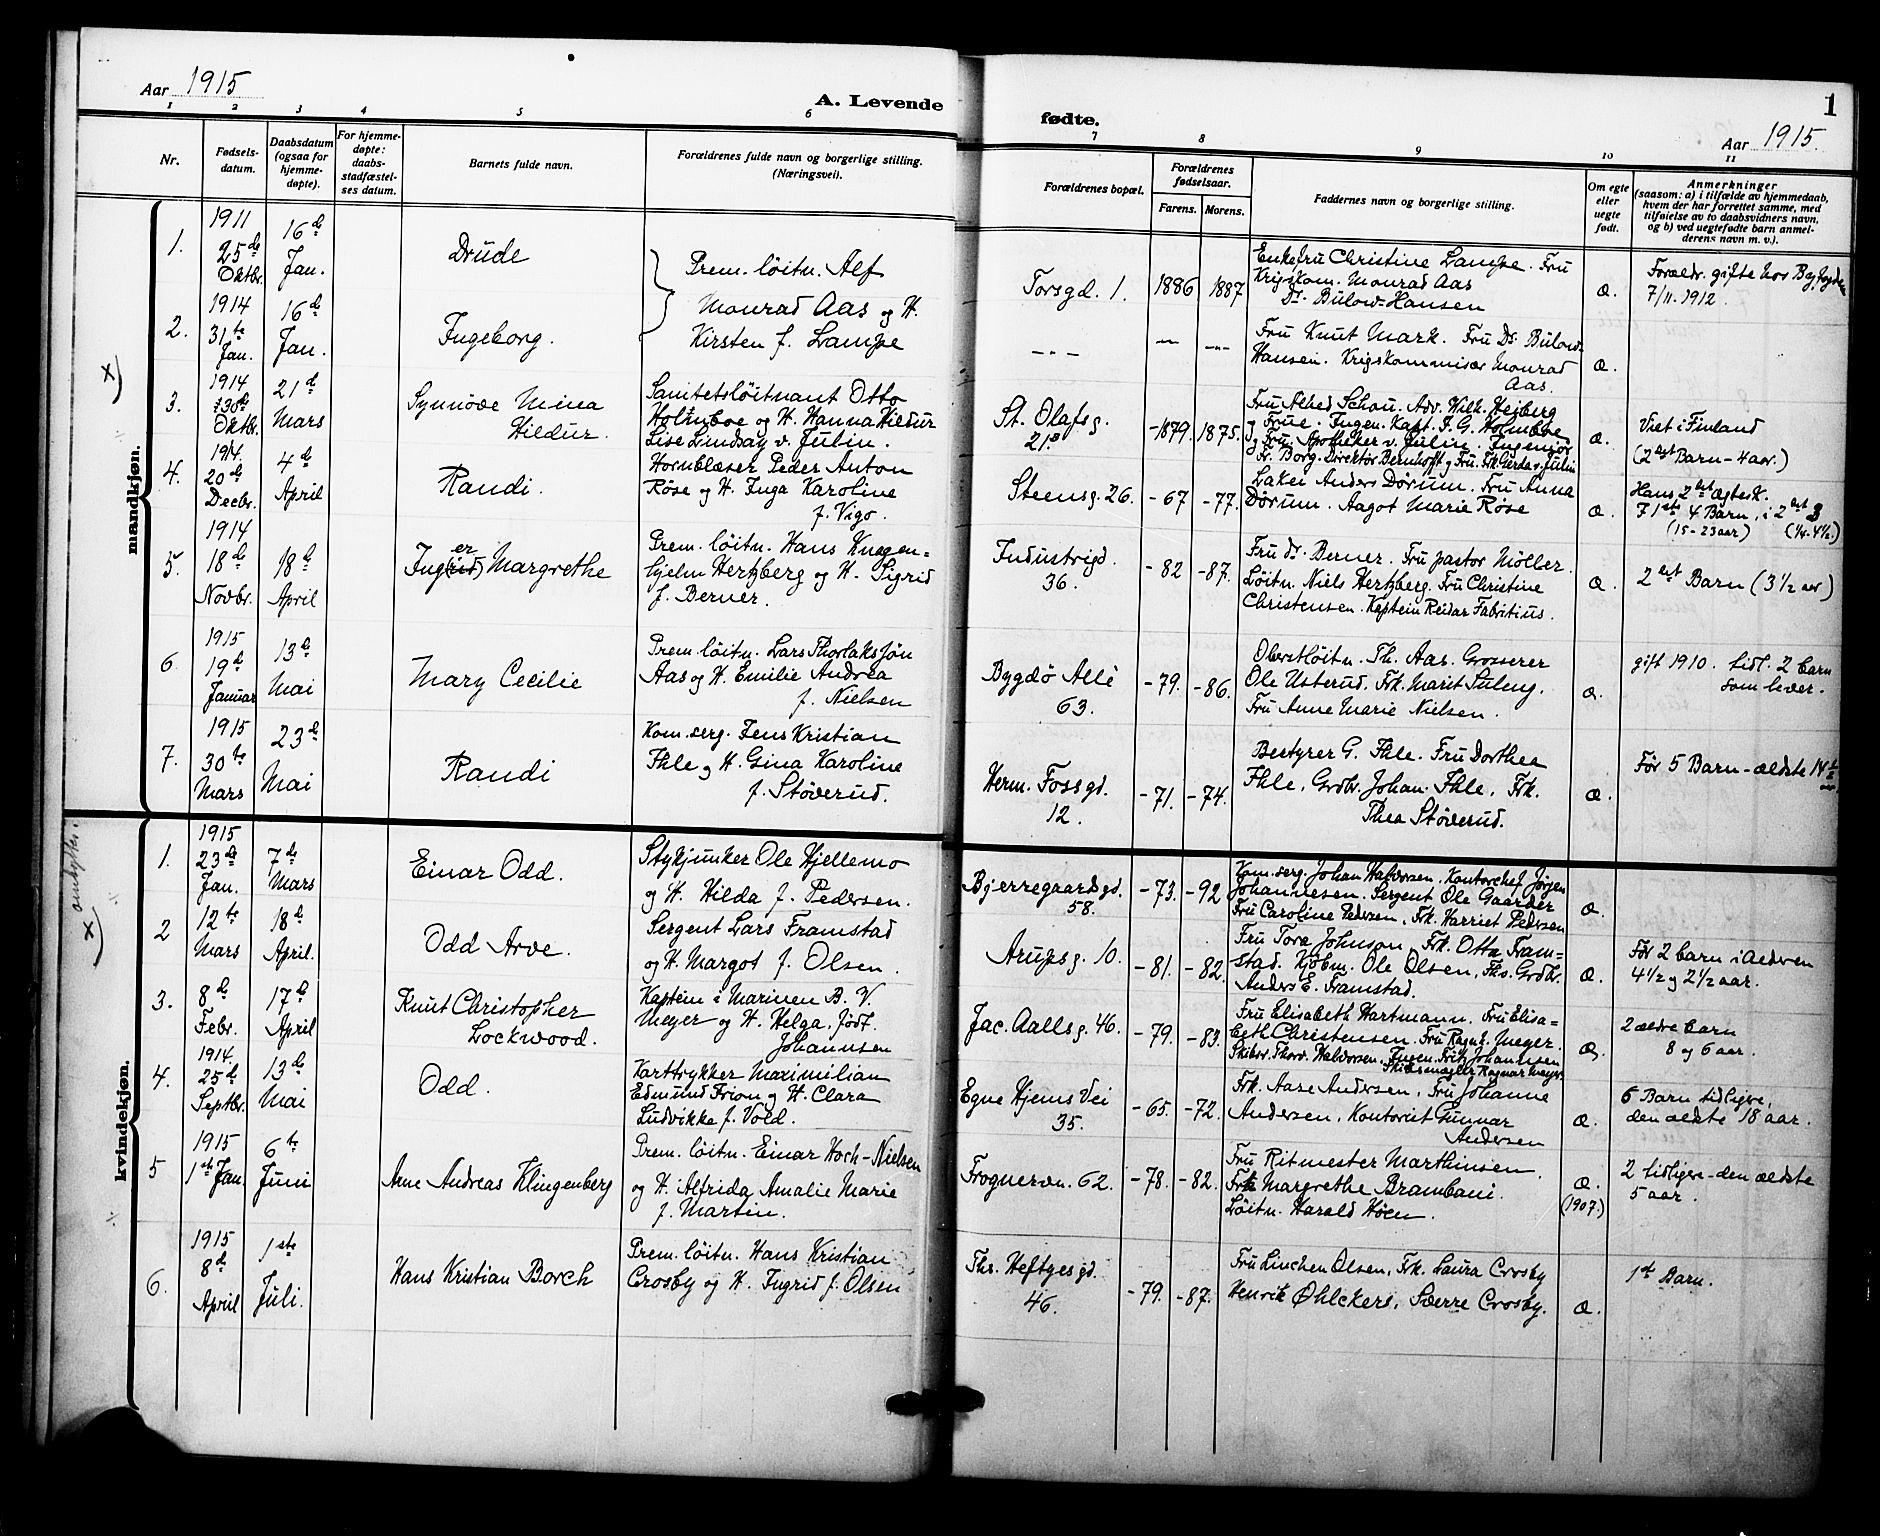 Aar 1915
A. Levende
1 2 3 4 5 6
Nr.
Fødsels-
datum.
Daabsdatum
(ogsaa for
hjemme-
døpte).
For hjemme-
døpte:
daabs-
stadfæstel-
ses datum.
Barnets fulde navn.
Forældrenes fulde navn og borgerlige stilling.
(Næringsvei).
fødte.
Aar 1915.
1
7 8 9 10 11
Forældrenes bopæl.
Forældrenes
fødselsaar.
Farens. Morens.
Faddernes navn og borgerlige stilling.
Om egte
eller
uegte
født.
Anmerkninger
(saasom: a) i tilfælde av hjemmedaab,
hvem der har forrettet samme, med
tilføielse av to daabsvidners navn,
og b) ved uegtefødte barn anmel-
derens navn m. v.).
mandkjøn.
x)
1.
1911
25de
Oktbr.
16de
Jan.
Drude
Prem. løitn. Alf
Monrad Aas og H.
Kirsten f. Lampe
Torsgd. 1.
1886 1887
Enkefru Christine Lampe. Fru
Krigskom. Monrad Aas
Dr. Bülow-Hansen
æ.
Forældr. gifte hos Byfogden
7/11. 1912.
2.
1914
31te
Jan.
16de
Jan.
Ingeborg.
-"-
Fru Knut Mark. Fru Dr. Bülow-
Hansen. Krigskommisær Monrad
Aas.
æ.
3.
1914
30de
Oktbr.
21de
Mars
Synnøve Mina
Hildur.
Sanitetsløitnant Otto
Holmboe og H. Hanna Hildur
Lise Lindsay v. Julin.
St. Olafsg.
21B
-1879. 1875.
Fru Alhed Schou. Adv. Wilh. Heiberg
og Frue. Ingen. Kapt. J. G. Holmboe
og Fru. Apotheker v. Julin. Ingeniør
Fr. Borg. Direktør Bernhoft og Fru. Frk. Gerda v. Julin
æ.
Viet i Finland
(2det Barn - 4 aar.)
4.
1914.
20de
Decbr.
4de
April
Randi.
Hornblæser Peder Anton
Røse og H. Inga Karoline
f. Vigo.
Steensg. 26.
-67 -77.
Lakei Anders Dørum. Fru Anna
Dørum. Aagot Marie Røse
æ.
Hans 2det ægtesk.
I 1ste 4 Barn, i 2det 3
(15-23 aar) (1/4-4 1/2.)
5.
1914
18de
Novbr.
18de
April
er
Ing(rid) Margrethe
Prem. løitn. Hans Knagen-
hjelm Hertzberg og H. Sigrid
f. Berner.
Industrigd.
36.
-82 -87.
Fru dr. Berner. Fru pastor Möller.
Løitn. Niels Hertzberg. Fru Christine
Christensen. Kaptein Reidar Fabritius.
æ.
2det Barn (3 1/2 aar)
6.
1915
19de
Januar
13de
Mai
Mary Cecilie
Prem. løitn. Lars Thorlaksjøn
Aas og H. Emilie Andrea
f. Nielsen
Bygdø Allé
63.
-79. -86.
Oberstløitn. Th. Aas. Grosserer
Ole Usterud. Frk. Marit Suleng.
Fru Anne Marie Nielsen.
æ.
gift 1910. tidl. 2 barn
som lever.
7.
1915
30te
Mars
23de
Mai
Randi
Kom. serg. Jens Kristian
Ihle og H. Gina Karoline
f. Støverud.
Herm. Fossgd.
12.
-71. -74.
Bestyrer G. Ihle. Fru Dorthea
Ihle, Grdbr. Johan Ihle, Frk.
Thea Støverud.
æ.
Før 5 Barn - ældste 14 1/2
aar.
kvindekjøn.
x) ombyttet.
1.
1915
23de
Jan.
7de
Mars
Einar Odd.
Stykjunker Ole Hjellemo
og H. Hilda f. Pedersen.
Bjerregaardsgd.
58.
-73. -92
Kom. serg. Johan Halvorsen. Kontorchef Jørgen
Johannesen. Sergent Ole Gaarder
Fru Caroline Pedersen, Frk. Harriet Pedersen
æ.
2
12te
Mars
18de
April.
Odd Arve.
Sergent Lars Framstad
og H. Margot f. Olsen.
Arupsg. 10.
-81. -82.
Fru Tora Johnson Frk. Otta Fram-
stad. Kjøbm. Ole Olsen, Ths. Grdbr.
Anders E. Framstad.
æ.
Før 2 barn i alderen
4 1/2 og 2 1/2 aar.
3.
8de
Febr.
17de
April
Knut Christopher
Lockwood.
Kaptein i Marinen B. V.
Meyer og H. Helga, født
Johannsen
Jac. Aallsg. 46.
-79. -83.
Fru Elisabeth Hartmann, Fru Elisa-
beth Christensen. Fru Ragnh. Meyer.
Skibsr. Thorv. Halvorsen. Ingen. Fritz Johannsen
Skibsmægler Ragnar Meyer.
æ.
2 ældre barn
8 og 6 aar.
4.
1914.
25de
Septbr.
13de
Mai
Odd.
Karttrykker Maximilian
Edmund Frion og H. Clara
Ludvikke f. Vold.
Egne Hjems Vei
35.
-65. -72.
Frk. Aase Andersen, Fru Johanne
Andersen, Kontorist Gunnar
Andersen
æ.
6 Barn tidligere,
den ældste 18 aar.
5
1915
1ste Jan.
6te
Juni
Arne Andreas Klingenberg
Prem. løitn. Einar Hoch-Nielsen
og H. Alfrida Amalie Marie
f. Martin.
Frognervn. 62.
-78. -82.
Fru Ritmester Marthinsen.
Frk Margrethe Brambani.
Løitn. Harald Høen.
æ.
(1907.)
2 tidligere - den ældste
5 aar.
6.
1915
8de
April
1ste
Juli.
Hans Kristian Borch
Prem. løitn. Hans Kristian
Crosby og H. Ingrid f. Olsen
Ths. Heftyesgd.
46.
-79. -87.
Fru Linchen Olsen, Frk. Laura Crosby
Henrik Øhlckers, Sverre Crosby.
æ.
1st Barn.